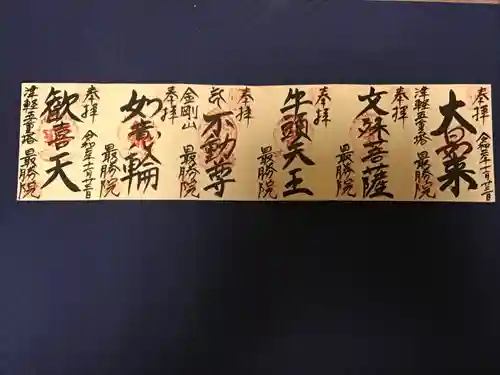 奉拝
令和 年十一月廿三日
大日如来
津軽五重塔 最勝院
奉拝
文殊菩薩
最勝院
奉拝
牛頭天王
最勝院
奉拝
不動尊
金剛山 最勝院
奉拝
如意輪
最勝院
奉拝
令和 年十一月廿三日
歓喜天
津軽五重塔 最勝院